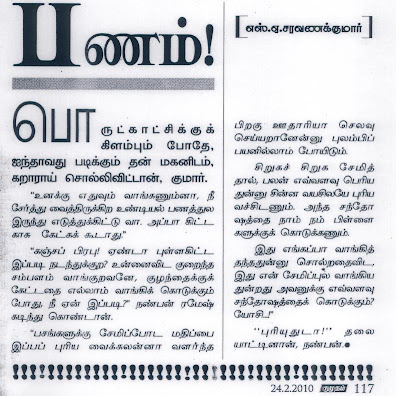 பணம்!
[எஸ்.ஏ.சரவணக்குமார்]
பொருட்காட்சிக்குக்
கிளம்பும் போதே,
ஐந்தாவது படிக்கும் தன் மகனிடம்,
கறாராய் சொல்லிவிட்டான், குமார்.
"உனக்கு எதுவும் வாங்கணும்னா, நீ
சேர்த்து வைத்திருக்கிற உண்டியல் பணத்துல
இருந்து எடுத்துக்கிட்டு வா. அப்பா கிட்ட
காசு கேட்கக் கூடாது."
"கஞ்சப் பிரபு! ஏண்டா புள்ளகிட்ட
இப்படி நடந்துக்குற? உன்னைவிட குறைந்த
சம்பளம் வாங்குறவனே, குழந்தைக்குக்
கேட்டதை எல்லாம் வாங்கிக் கொடுக்கும்
போது, நீ ஏன் இப்படி?" நண்பன் ரமேஷ்
கடிந்து கொண்டான்.
"பசங்களுக்கு சேமிப்போட மதிப்பை
இப்பப் புரிய வைக்கலன்னா வளர்ந்த
பிறகு ஊதாரியா செலவு
செய்யறானேன்னு புலம்பிப்
பயனில்லாம் போயிடும்.
சிறுகச் சிறுக சேமித்
தால், பலன் எவ்வளவு பெரிய
துன்னு சின்ன வயசிலயே புரிய
வச்சிடணும். அந்த சந்தோ
ஷத்தை நாம் நம் பிள்ளை
களுக்குக் கொடுக்கணும்.
இது எங்கப்பா வாங்கித்
தந்ததுன்னு சொல்றதைவிட,
இது என் சேமிப்புல வாங்கிய
துன்றது அவனுக்கு எவ்வளவு
சந்தோஷத்தைக் கொடுக்கும்?
யோசி!"
"புரியுதுடா!" தலை
யாட்டினான், நண்பன்.
24.2.2010 குமுதம் 117